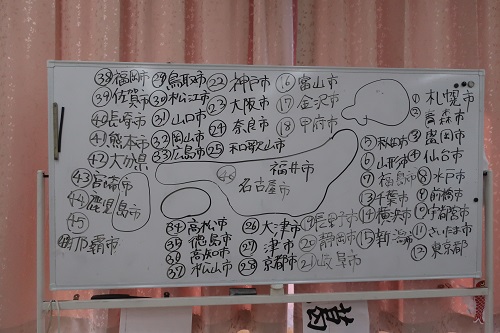 ㊳福岡市
㊴佐賀市
㊵長崎市
㊶熊本市
㊷大分県
㊸宮崎市
㊹鹿児島市
㊺
那覇市
㉙鳥取市
㉚松江市
㉛山口市
㉜岡山市
㉝広島市
㉒神戸市
㉓大阪市
㉔奈良市
㉕和歌山市
⑯富山市
⑰金沢市
⑱甲府市
福井市
名古屋市
①札幌市
②青森市
③盛岡市
④仙台市
⑤秋田市
⑥山形市
⑦福島市
⑧水戸市
⑨前橋市
⑩宇都宮市
⑪さいたま市
⑫東京都
⑬千葉市
⑭横浜市
⑮新潟市
㉞高松市
㉟徳島市
㊱高知市
㊲松山市
㉖大津市
㉗津市
㉘京都市
⑲長野市
⑳静岡市
㉑岐阜市
葛